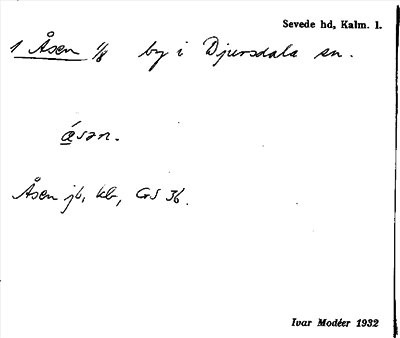 Sevede hd, Kalm. l.
1 Åsen 1/8 by i Djursdala sn.
ǽsən.
Åsen jb, kb, GS 36.
Ivar Modéer 1932